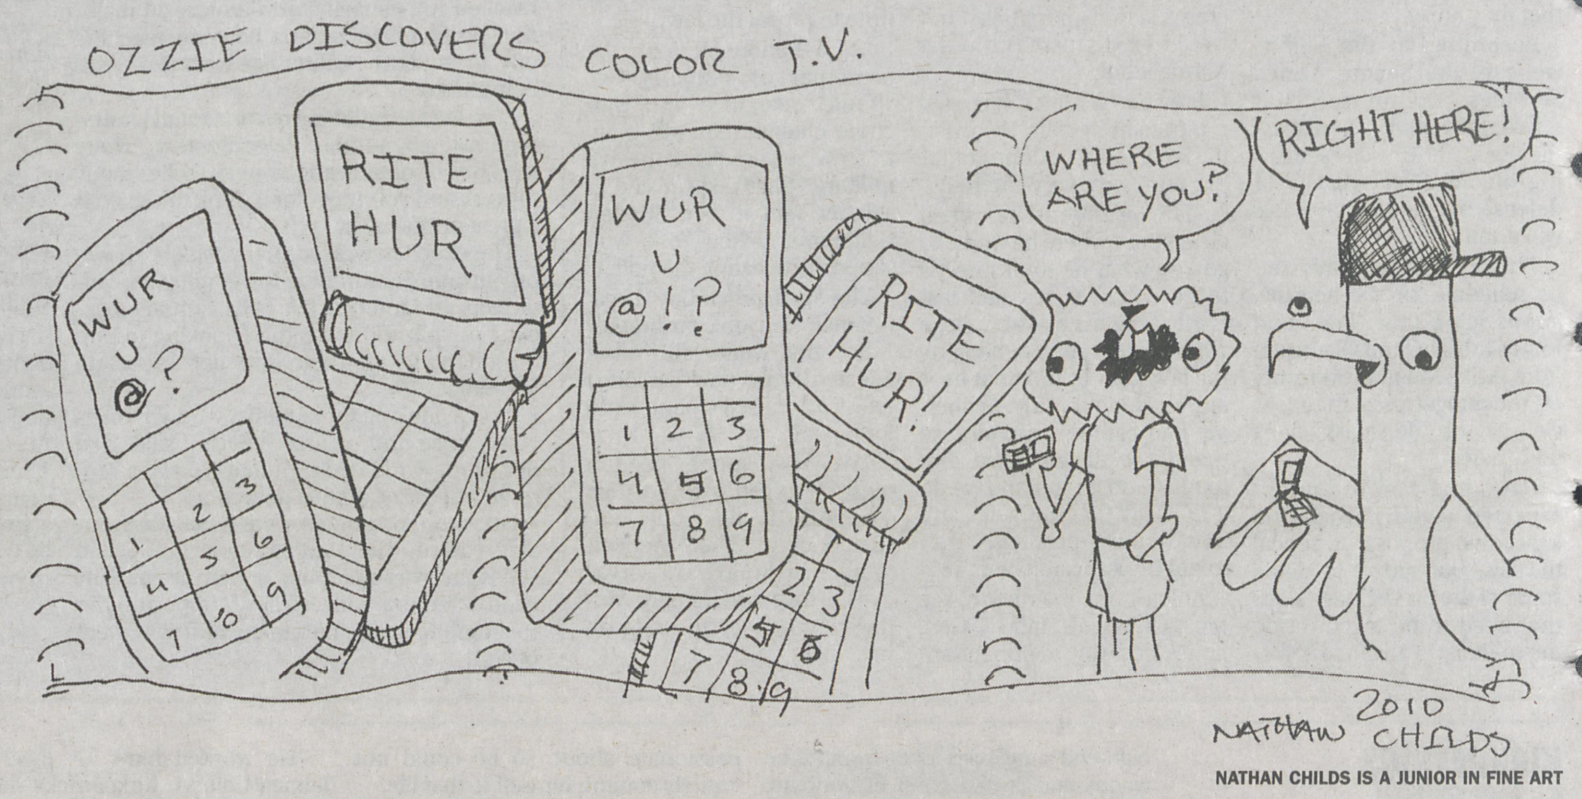 OZZIE DISCOVERS COLOR T.V.
WUR
U
@?
1 2 3
4 5 6
7 8 9
RITE
HUR
WUR
U
@!?
1 2 3
4 5 6
7 8 9
RITE
HUR!
2 3
5 6
7 8 9
WHERE
ARE YOU?
RIGHT HERE!
NATHAN CHILDS
2010
NATHAN CHILDS IS A JUNIOR IN FINE ART